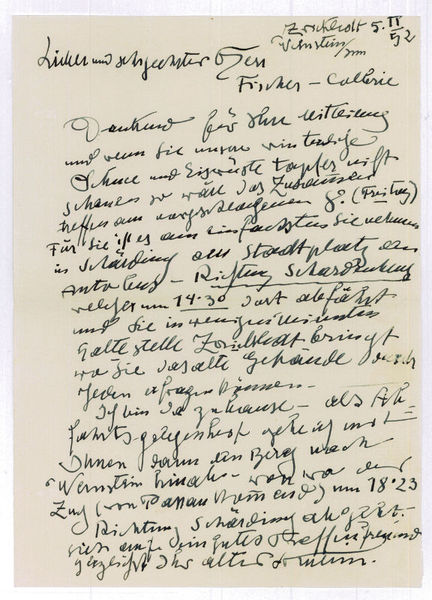 Zwickledt 5. II
Wernstein/Inn 52
Lieber und sehr geehrter Herr
Fischer – Colbrie
Dankend für Ihre Mitteilung
und wenn Sie unsere winterliche
Schnee und Eiswüste tapfer nicht
scheuen so wäre das Zusammen
treffen am vorgeschlagenen 8. (Freitag)
Für Sie ist es am einfachsten Sie nehmen
in Schärding am Stadtplatz den
Autobus – Richtung Schardenberg
welcher um 14·30 dort abfährt
und Sie in wenigen Minuten
Haltestelle Zwickledt bringt
wo Sie das alte Gebäude durch
jeden erfragen können –
Ich bin da zuhause – als Rück-
fahrtsgelegenheit gehe ich mit
Ihnen dann den Berg nach
Wernstein hinab – von wo der
Zug (von Passau kommend) um 18·23
Richtung Schärding abgeht –
sich auf ein gutes Treffen freuend
Ihr alter